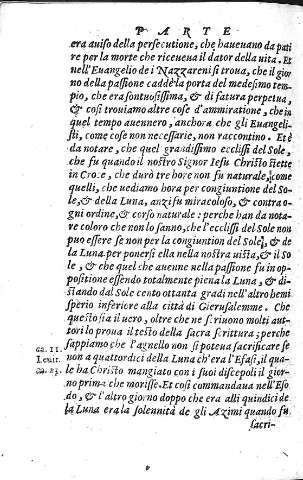 PARTE
era auiso della persecutione, che haueuano da pati
re per la morte che riceueua il dator della uita. Et
nell'Euangelio de i Nazzareni si troua, che il gior
no della passione cadde la porta del medesimo tem-
pio, che era sontuosissima, & di fatura perpetua,
& cosi trouiamo altre cose d'ammiratione, che in
quel tempo auennero, anchora che gli Euangeli-
sti, come cose non necessarie, non raccontino. Et è
da notare, che quel grandissimo ecclissi del Sole,
che fu quando il nostro Signor Iesu Christo stette
in Croce, che durò tre hore non fu naturale, come
quelli, che uediamo hora per congiuntione del So-
le, & della Luna, anzi fu miracoloso, & contra o-
gni ordine, & corso naturale: perche han da nota-
re coloro che non lo sanno, che l'ecclissi del Sole non
puo essere se non per la congiuntion del Sole, & de
la Luna per ponersi ella nella nostra uista, & il So
le, & che quel che auenne nella passione fu in op-
positione essendo totalmente piena la Luna, & di-
stando dal Sole cento ottanta gradi nell'altro hemi
sperio inferiore alla città di Gierusalemme. Che
questo sia il uero, oltre che se scriuono molti aut-
tori lo proua il testo della sacra scrittura; perche
sappiamo che l'agnello non si poteua sacrificare se
ca. 11. non a quattordici della Luna ch'era l'Efasi, il qua-
Leuit. le ha Christo mangiato con i suoi discepoli il gior-
ca. 23. no prima che morisse. Et così commandaua nell'Eso
do, & l'altro giorno doppo che era alli quindici de
la Luna era la solennità de gli Azimi quando fu
sacri-